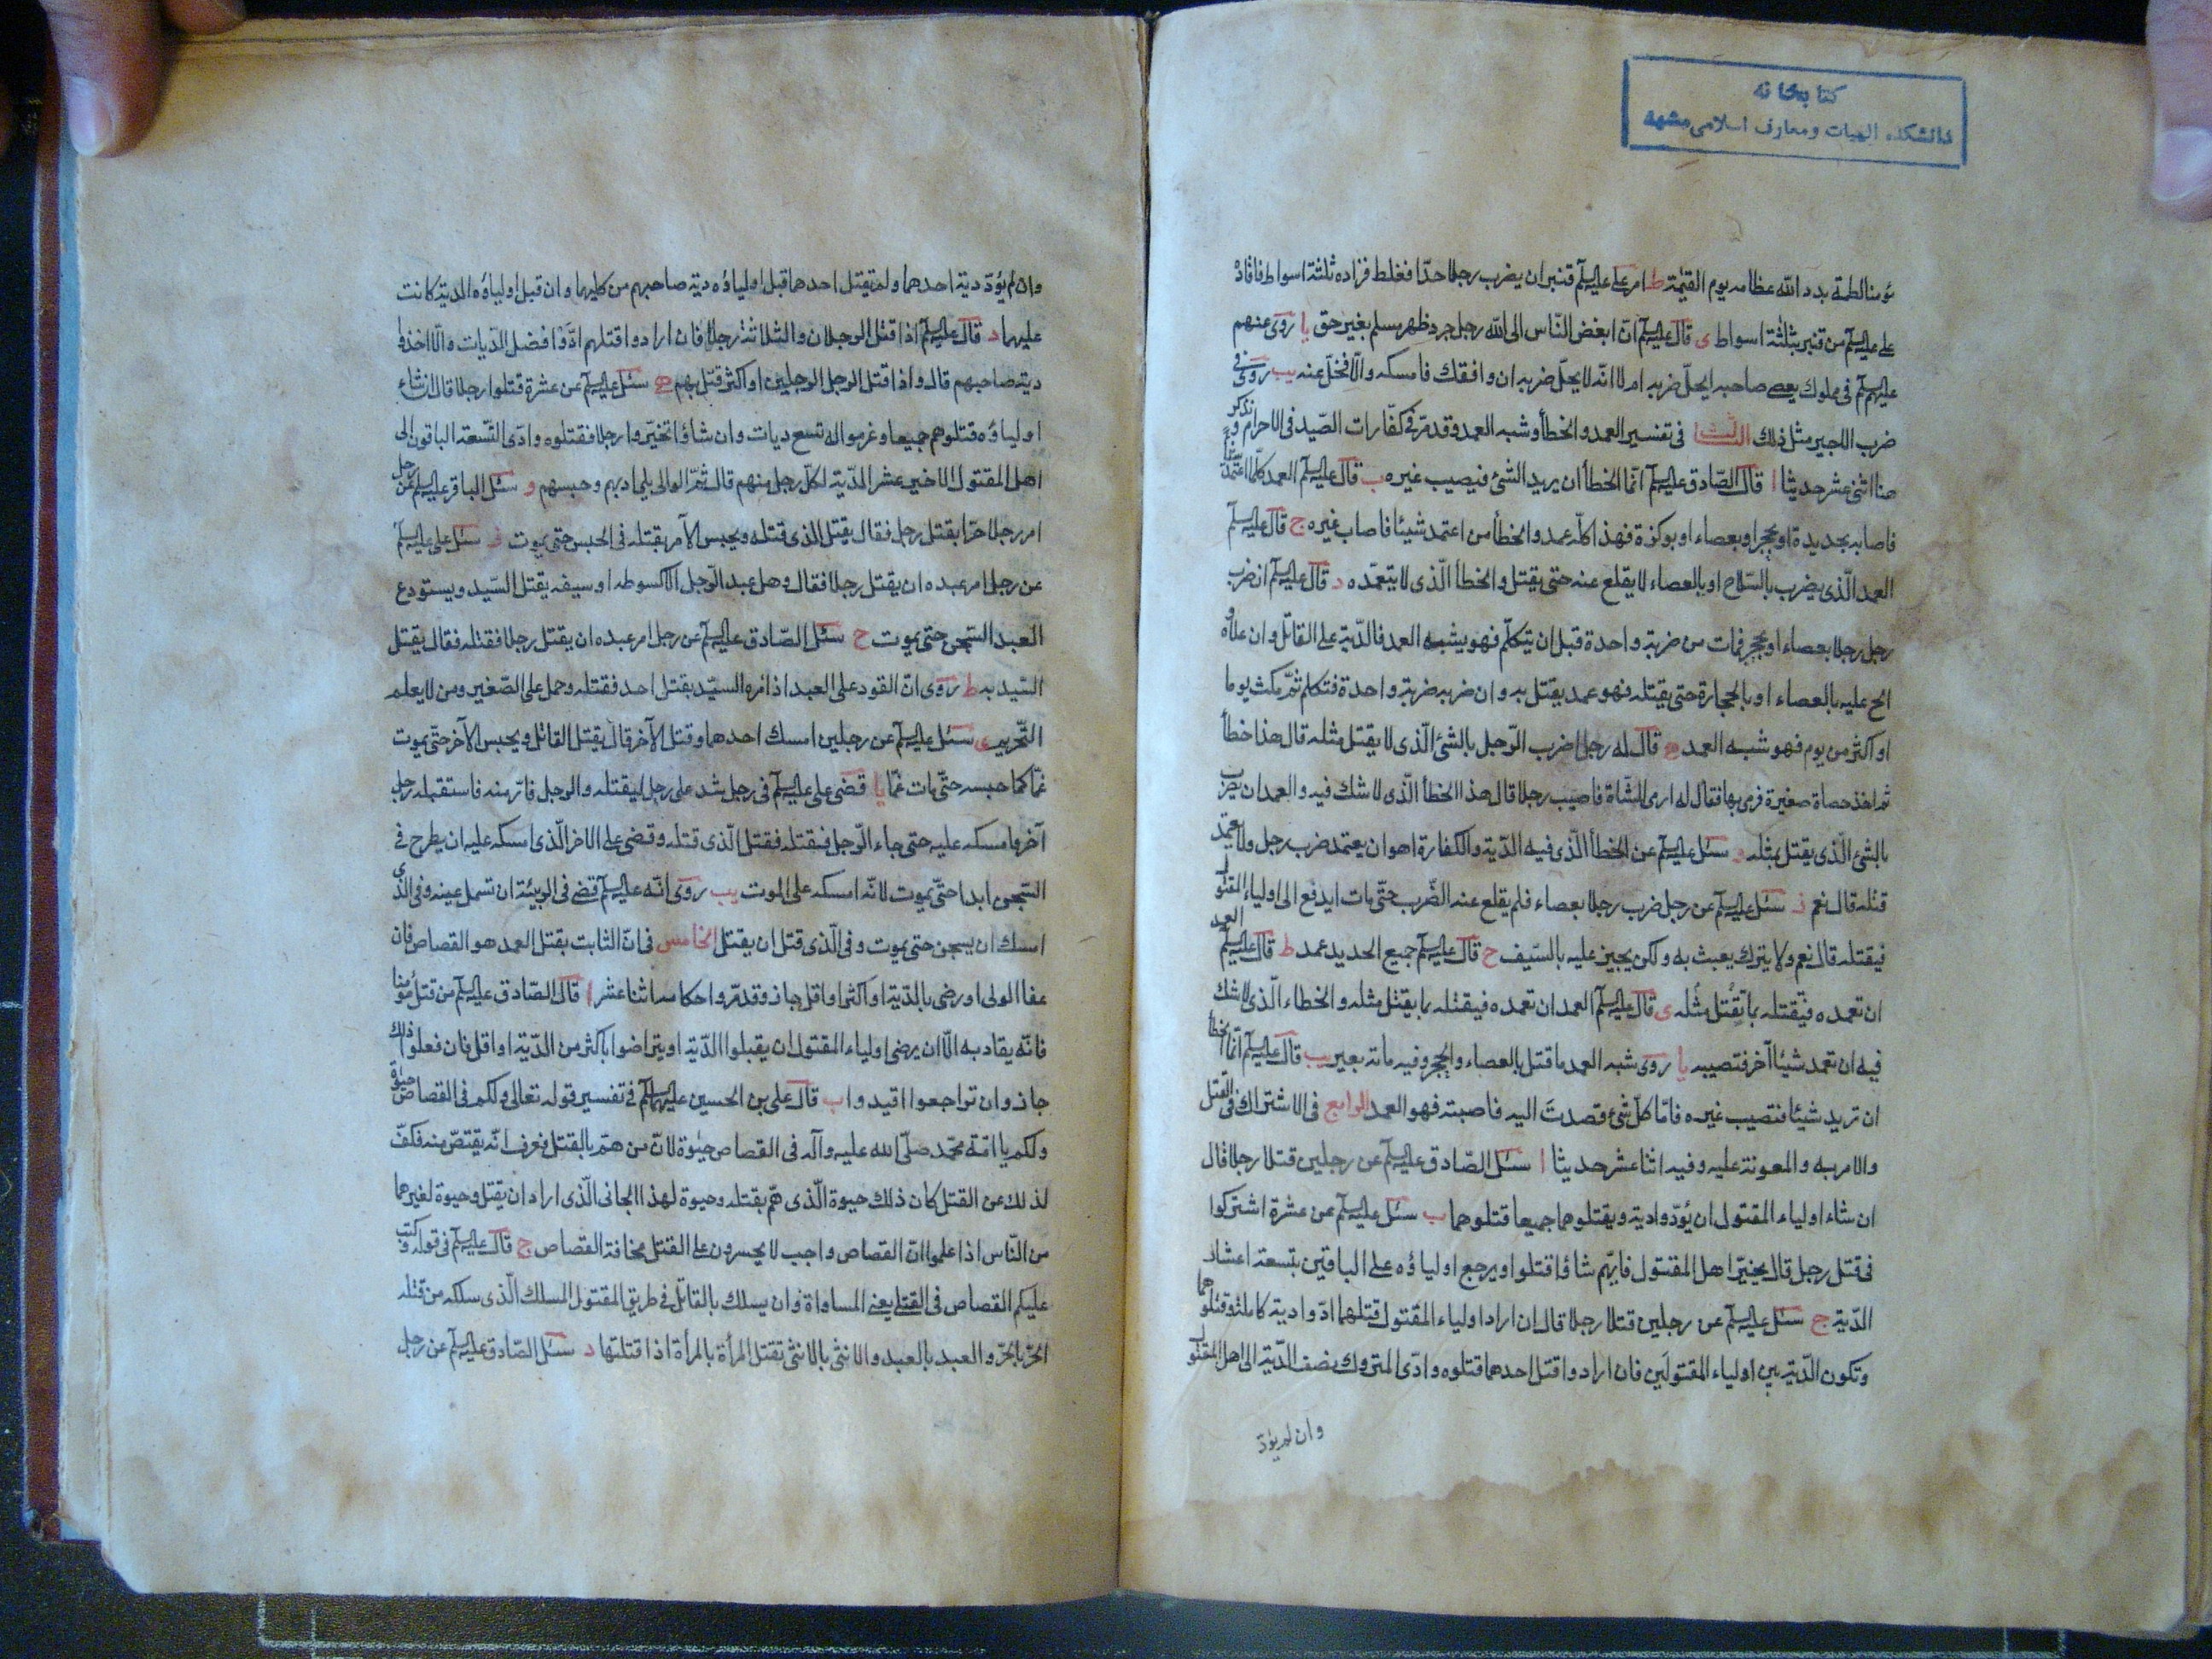 كتابخانه
دانشكده الهيات ومعارف اسلامى مشهد
مؤمنا لطمة بدد الله عظامه يوم القيٰمة ط امر على عليه السلم قنبر ان يضرب رجلا حدّا فغلط فزاده ثلثة اسواط فاقاده
على عليه السلم من قنبر بثلثة اسواط ى قال عليه السلم انّ ابغض النّاس الى الله رجل جرد ظهر مسلم بغير حق يا روى عنهم
عليهم السلم فى مملوك يعصى صاحبه ايحلّ ضربه ام لا انّه لا يحلّ ضربه ان وافقك فامسكه والّا فخلّ عنه يب روى فى
ضرب الاجير مثل ذلك الثالث فى تفسير العمد والخطأ وشبه العمد وقد مرّ فى كفّارات الصّيد فى الاحرام ونذكر
هنا اثنى عشر حديثا ا قال الصّادق عليه السلم انّما الخطأ ان يريد الشئ فيصيب غيره ب قال عليه السلم العمد كلّما اعتمد شيئا
فاصابه بحديدة او بحجر او بعصاء او بوكزة فهذا كلّه عمد والخطأ من اعتمد شيئا فاصاب غيره ج قال عليه السلم
العمد الّذى يضرب بالسّلاح او بالعصاء لا يقلع عنه حتى يقتل والخطأ الّذى لا يتعمّده د قال عليه السلم ان ضرب
رجل رجلا بعصاء او بحجر فمات من ضربة واحدة قبل ان يتكلّم فهو يشبه العمد فالدّية على القاتل وان علاه و
الح عليه بالعصاء او بالحجارة حتى يقتله فهو عمد يقتل به وان ضربه ضربة واحدة فتكلم ثمّ مكث يوما
او اكثر من يوم فهو شبه العمد ه قال له رجل اضرب الرّجل بالشئ الّذى لا يقتل مثله قال هذا خطأ
ثم اخذ حصاة صغيرة فرمى بها فقال له ارمى الشّاة فاصيب رجلا قال هذا الخطأ الّذى لا شك فيه والعمد ان يضرب
بالشئ الّذى يقتل بمثله و سئل عليه السلم عن الخطأ الّذى فيه الدّية والكفارة اهو ان يعتمد ضرب رجل ولا يعتمد
قتله قال نعم ز سئل عليه السلم عن رجل ضرب رجلا بعصاء فلم يقلع عنه الضّرب حتّى مات ايدفع الى اولياء المقتول
فيقتله قال نعم ولا يترك يعبث به ولكن يجيز عليه بالسّيف ح قال عليه السلم جميع الحديد عمد ط قال عليه السلم العمد
ان تعمده فيقتله بما تقتل مثله ى قال عليه السلم العمد ان تعمده فيقتله بما يقتل مثله والخطاء الّذى لا شك
فيه ان تعمد شيئا آخر فتصيبه يا روى شبه العمد ما قتل بالعصاء والحجر وفيه مائة بعير يب قال عليه السلم انّما الخطأ
ان تريد شيئا فتصيب غيره فامّا كلّ شئ قصدتَ اليه فاصبته فهو العمد الرابع فى الاشتراك فى القتل
والامر به والمعونة عليه وفيه اثنا عشر حديثا ا سئل الصّادق عليه السلم عن رجلين قتلا رجلا قال
ان شاء اولياء المقتول ان يؤدّوا دية ويقتلوهما جميعا قتلوهما ب سئل عليه السلم عن عشرة اشتركوا
فى قتل رجل قال يخيّر اهل المقتول فايّهم شاؤا قتلوا ويرجع اولياؤه على الباقين بتسعة اعشار
الدّية ج سئل عليه السلم عن رجلين قتلا رجلا قال ان اراد اولياء المقتول قتلهما ادّوا دية كاملة وقتلوهما
وتكون الدّية بين اولياء المقتولَين فان ارادوا قتل احدهما قتلوه وادّى المتروك نصف الدّية الى اهل المقتول
وان لم يؤدّ
وان لم يؤدّ دية احدهما ولم يقتل احدهما قبل اولياؤه دية صاحبهم من كليهما وان قبل اولياؤه الدية كانت
عليهما د قال عليه السلم اذا قتل الرجلان والثلاثة رجلا فان ارادوا قتلهم ادّوا فضل الدّيات والّا اخذوا
دية صاحبهم قال واذا قتل الرجل الرجلين او اكثر قتل بهم ه سئل عليه السلم عن عشرة قتلوا رجلا قال ان شاء
اولياؤه قتلوهم جميعا وغرموا له تسع ديات وان شاؤا تخيّروا رجلا فقتلوه وادّى التّسعة الباقون الى
اهل المقتول الاخير عشر الدّية لكلّ رجل منهم قال ثمّ الوالى يلى ادبهم وحبسهم و سئل الباقر عليه السلم عن رجل
امر رجلا حرّا بقتل رجل فقال يقتل الذى قتله ويحبس الآمر بقتله فى الحبس حتى يموت ز سئل على عليه السلم
عن رجل امر عبده ان يقتل رجلا فقال وهل عبد الرّجل الا كسوطه او سيفه يقتل السّيد ويستودع
العبد السّجن حتى يموت ح سئل الصّادق عليه السلم عن رجل امر عبده ان يقتل رجلا فقتله فقال يقتل
السّيد به ط روى انّ القود على العبد اذا امره السيّد بقتل احد فقتله وحمل على الصّغير ومن لا يعلم
التّحريم ى سئل عليه السلم عن رجلين امسك احدهما وقتل الآخر قال يقتل القاتل ويحبس الآخر حتّى يموت
غمّا كما حبسه حتّى مات غمّا يا قضى على عليه السلم فى رجل شد على رجل ليقتله والرجل فارّ منه فاستقبله رجل
آخر فامسكه عليه حتى جاء الرّجل فقتله فقتل الّذى قتله وقضى على الاخر الّذى امسكه عليه ان يطرح فى
السّجن ابدا حتّى يموت لانّه امسكه على الموت يب روى انّه عليه السلم قضى فى الربيئة ان تسمل عينه وفى الّذى
امسك ان يسجن حتى يموت وفى الّذى قتل ان يقتل الخامس فى انّ الثابت بقتل العمد هو القصاص فان
عفا الولى او رضى بالدّية او اكثر او اقل جاز وقد مرّ واحكامه اثنا عشر ا قال الصّادق عليه السلم من قتل مؤمنا
فانّه يقاد به الّا ان يرضى اولياء المقتول ان يقبلوا الدّية او يتراضوا باكثر من الدّية او اقل فان فعلوا ذلك
جاز وان تراجعوا اقيدوا ب قال على بن الحسين عليهما السلم فى تفسير قوله تعالى ولكم فى القصاص حيوة
ولكم يا امّة محمّد صلّى الله عليه وآله فى القصاص حيٰوة لانّ من همّ بالقتل فعرف انّه يقتصّ منه فكفّ
لذلك عن القتل كان ذلك حيوة الّذى همّ بقتله وحيوة لهذا الجانى الّذى اراد ان يقتل وحيوة لغيرهما
من النّاس اذا علموا انّ القصاص واجب لا يجسرون على القتل مخافة القصاص ج قال عليه السلم فى قوله كتب
عليكم القصاص فى القتلى يعنى المساواة وان يسلك بالقاتل فى طريق المقتول المسلك الّذى سلكه من قتله
الحرّ بالحرّ والعبد بالعبد والانثى بالانثى تقتل المرأة بالمرأة اذا قتلتها د سئل الصّادق عليه السلم عن رجل